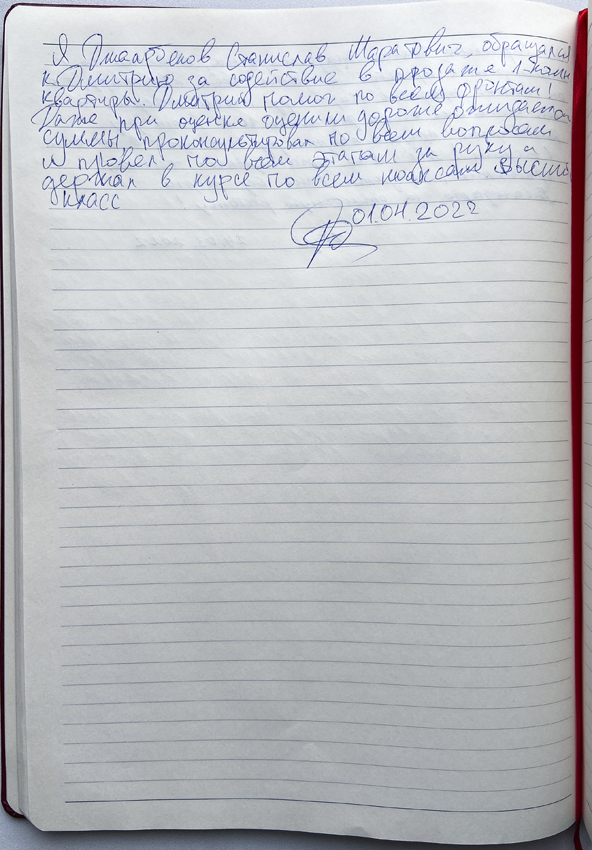 Я Джаарбеков Станислав Маратович, обращался
к Дмитрию за содействие в продаже 1-комн
квартиры. Дмитрий помог по всем фронтам!
Даже при оценке оценили дороже ожидаемой
суммы, проконсультировал по всем вопросам
и провел по всем этапам за руку и
держал в курсе по всем нюансам высший
класс
01.04.2022